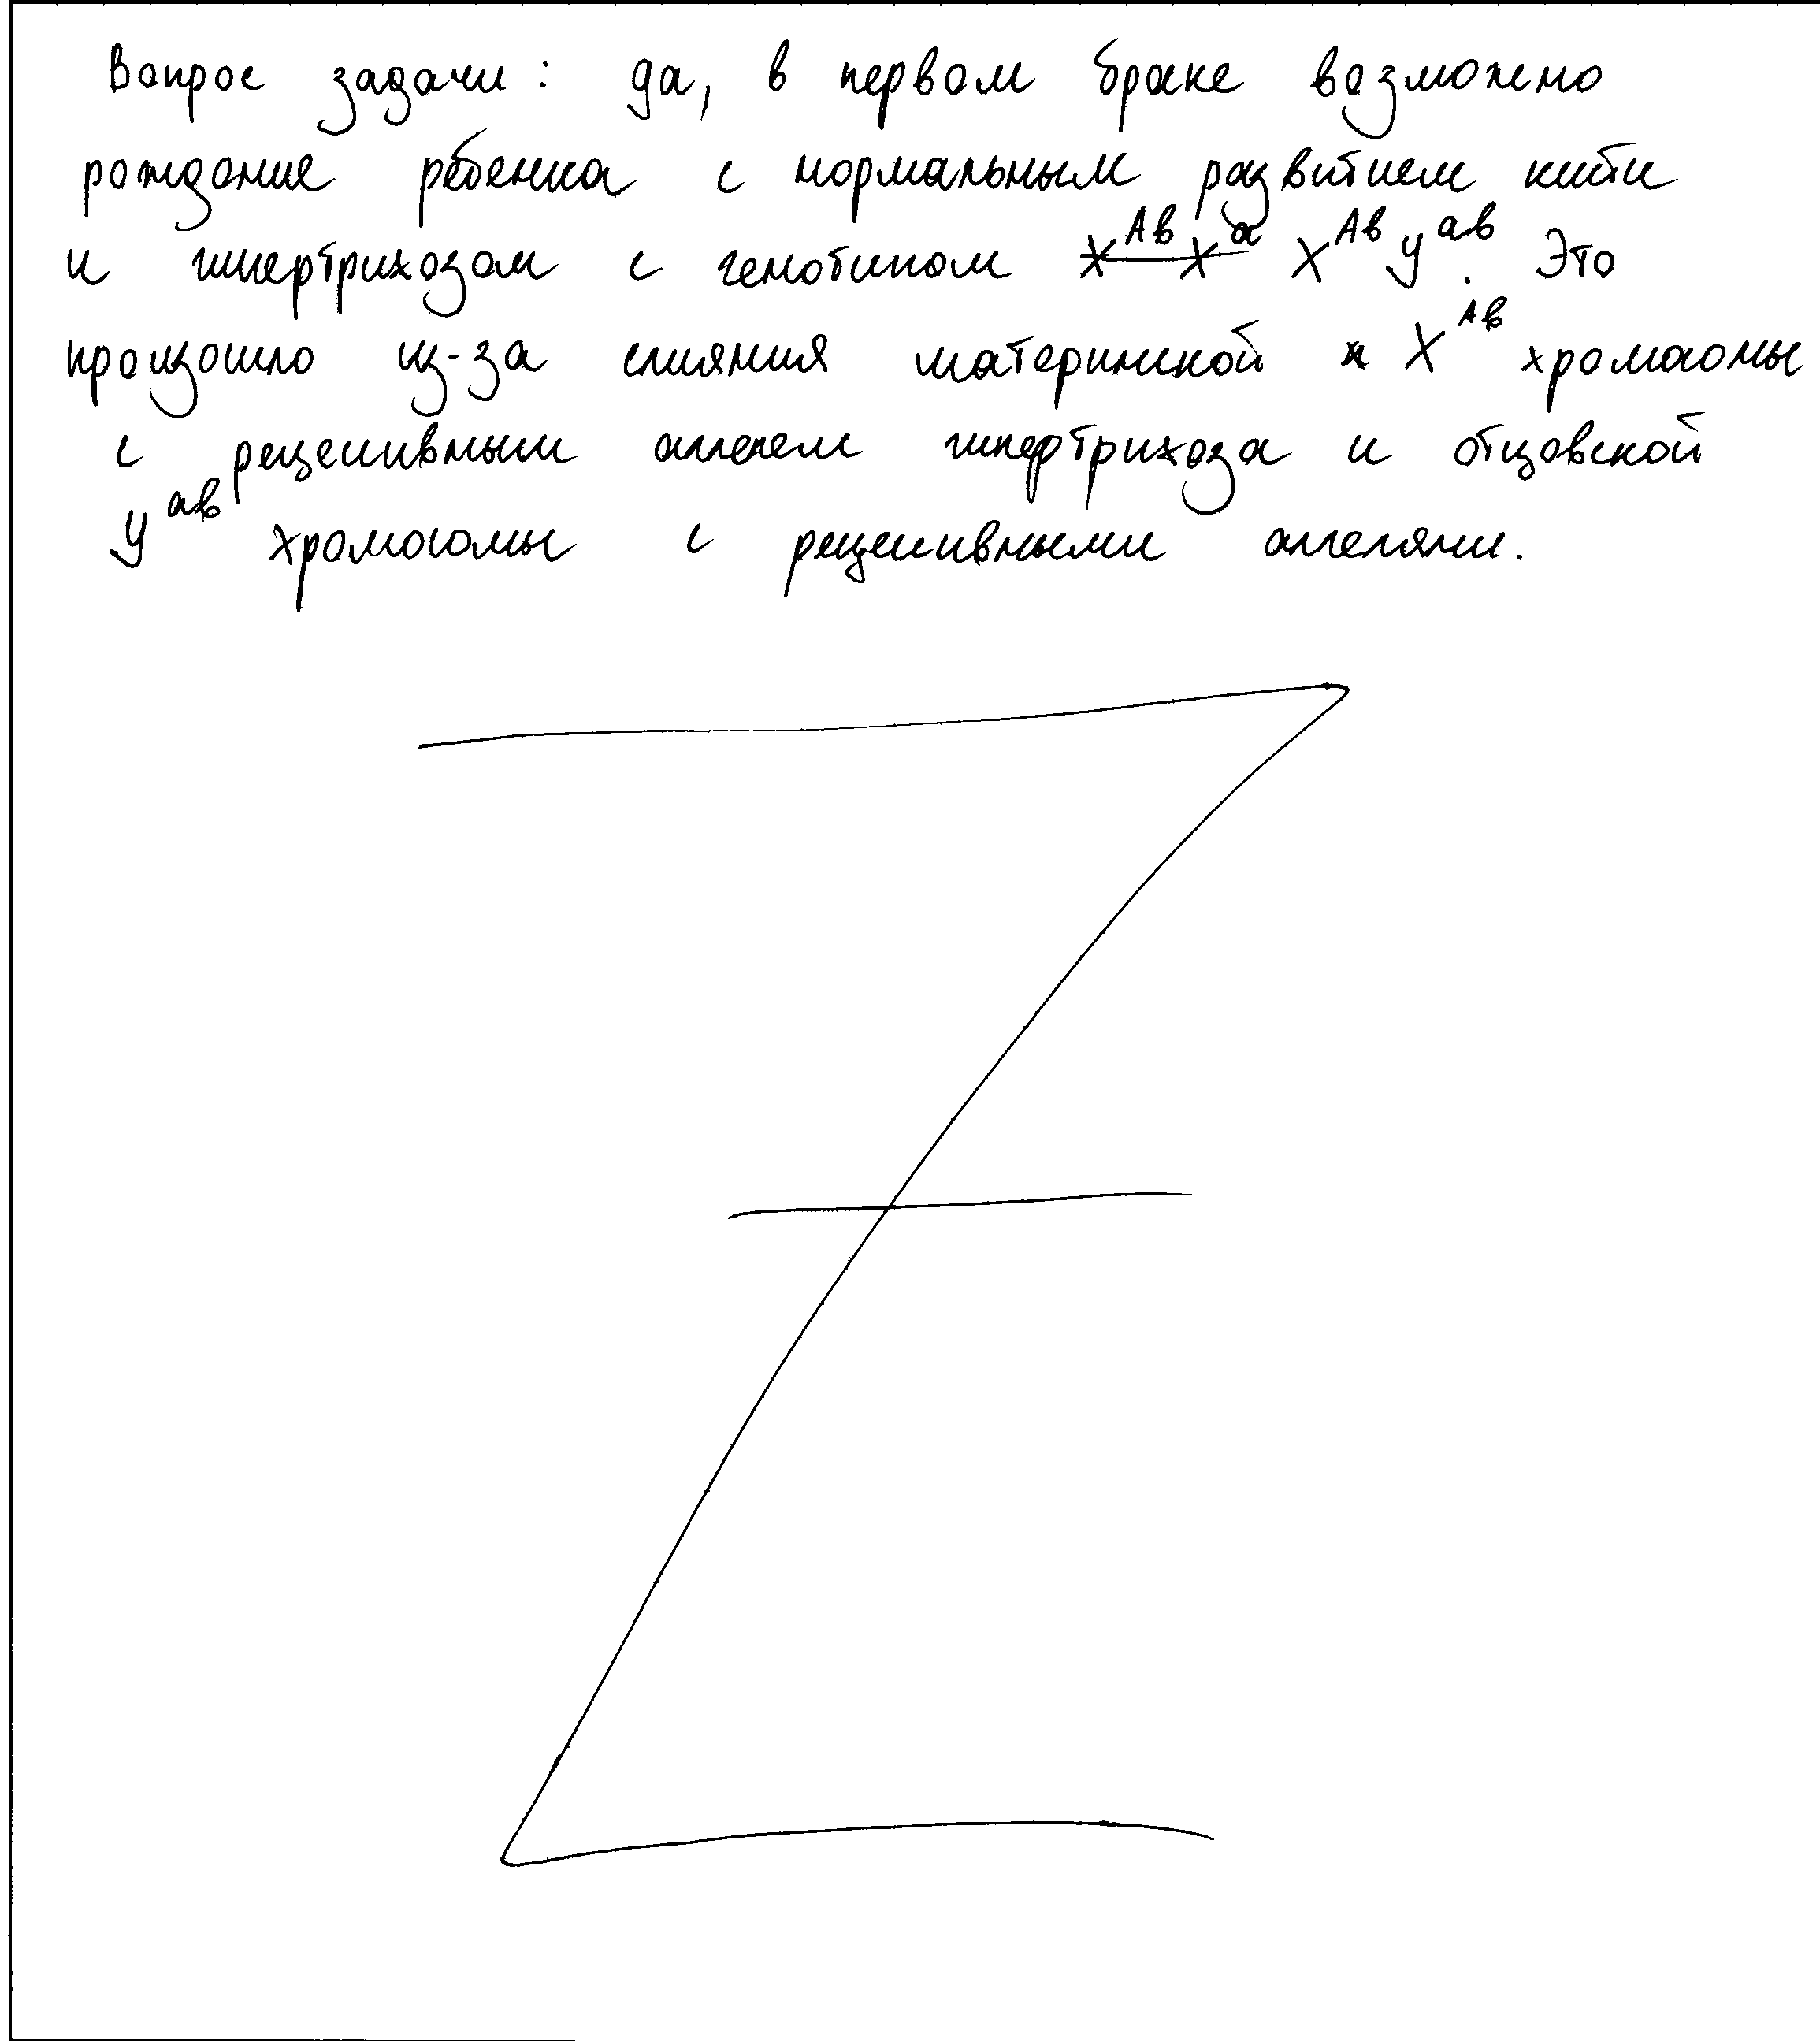 Вопрос задачи: да, в первом браке возможно
рождение ребенка с нормальным развитием кисти
и гипертрихозом с генотипом X^Ab X^a X^Ab y^ab. Это
произошло из-за слияния материнской х X^Ab хромосомы
с рецессивным аллелем гипертрихоза и отцовской
y^ab хромосомы с рецессивными аллелями.